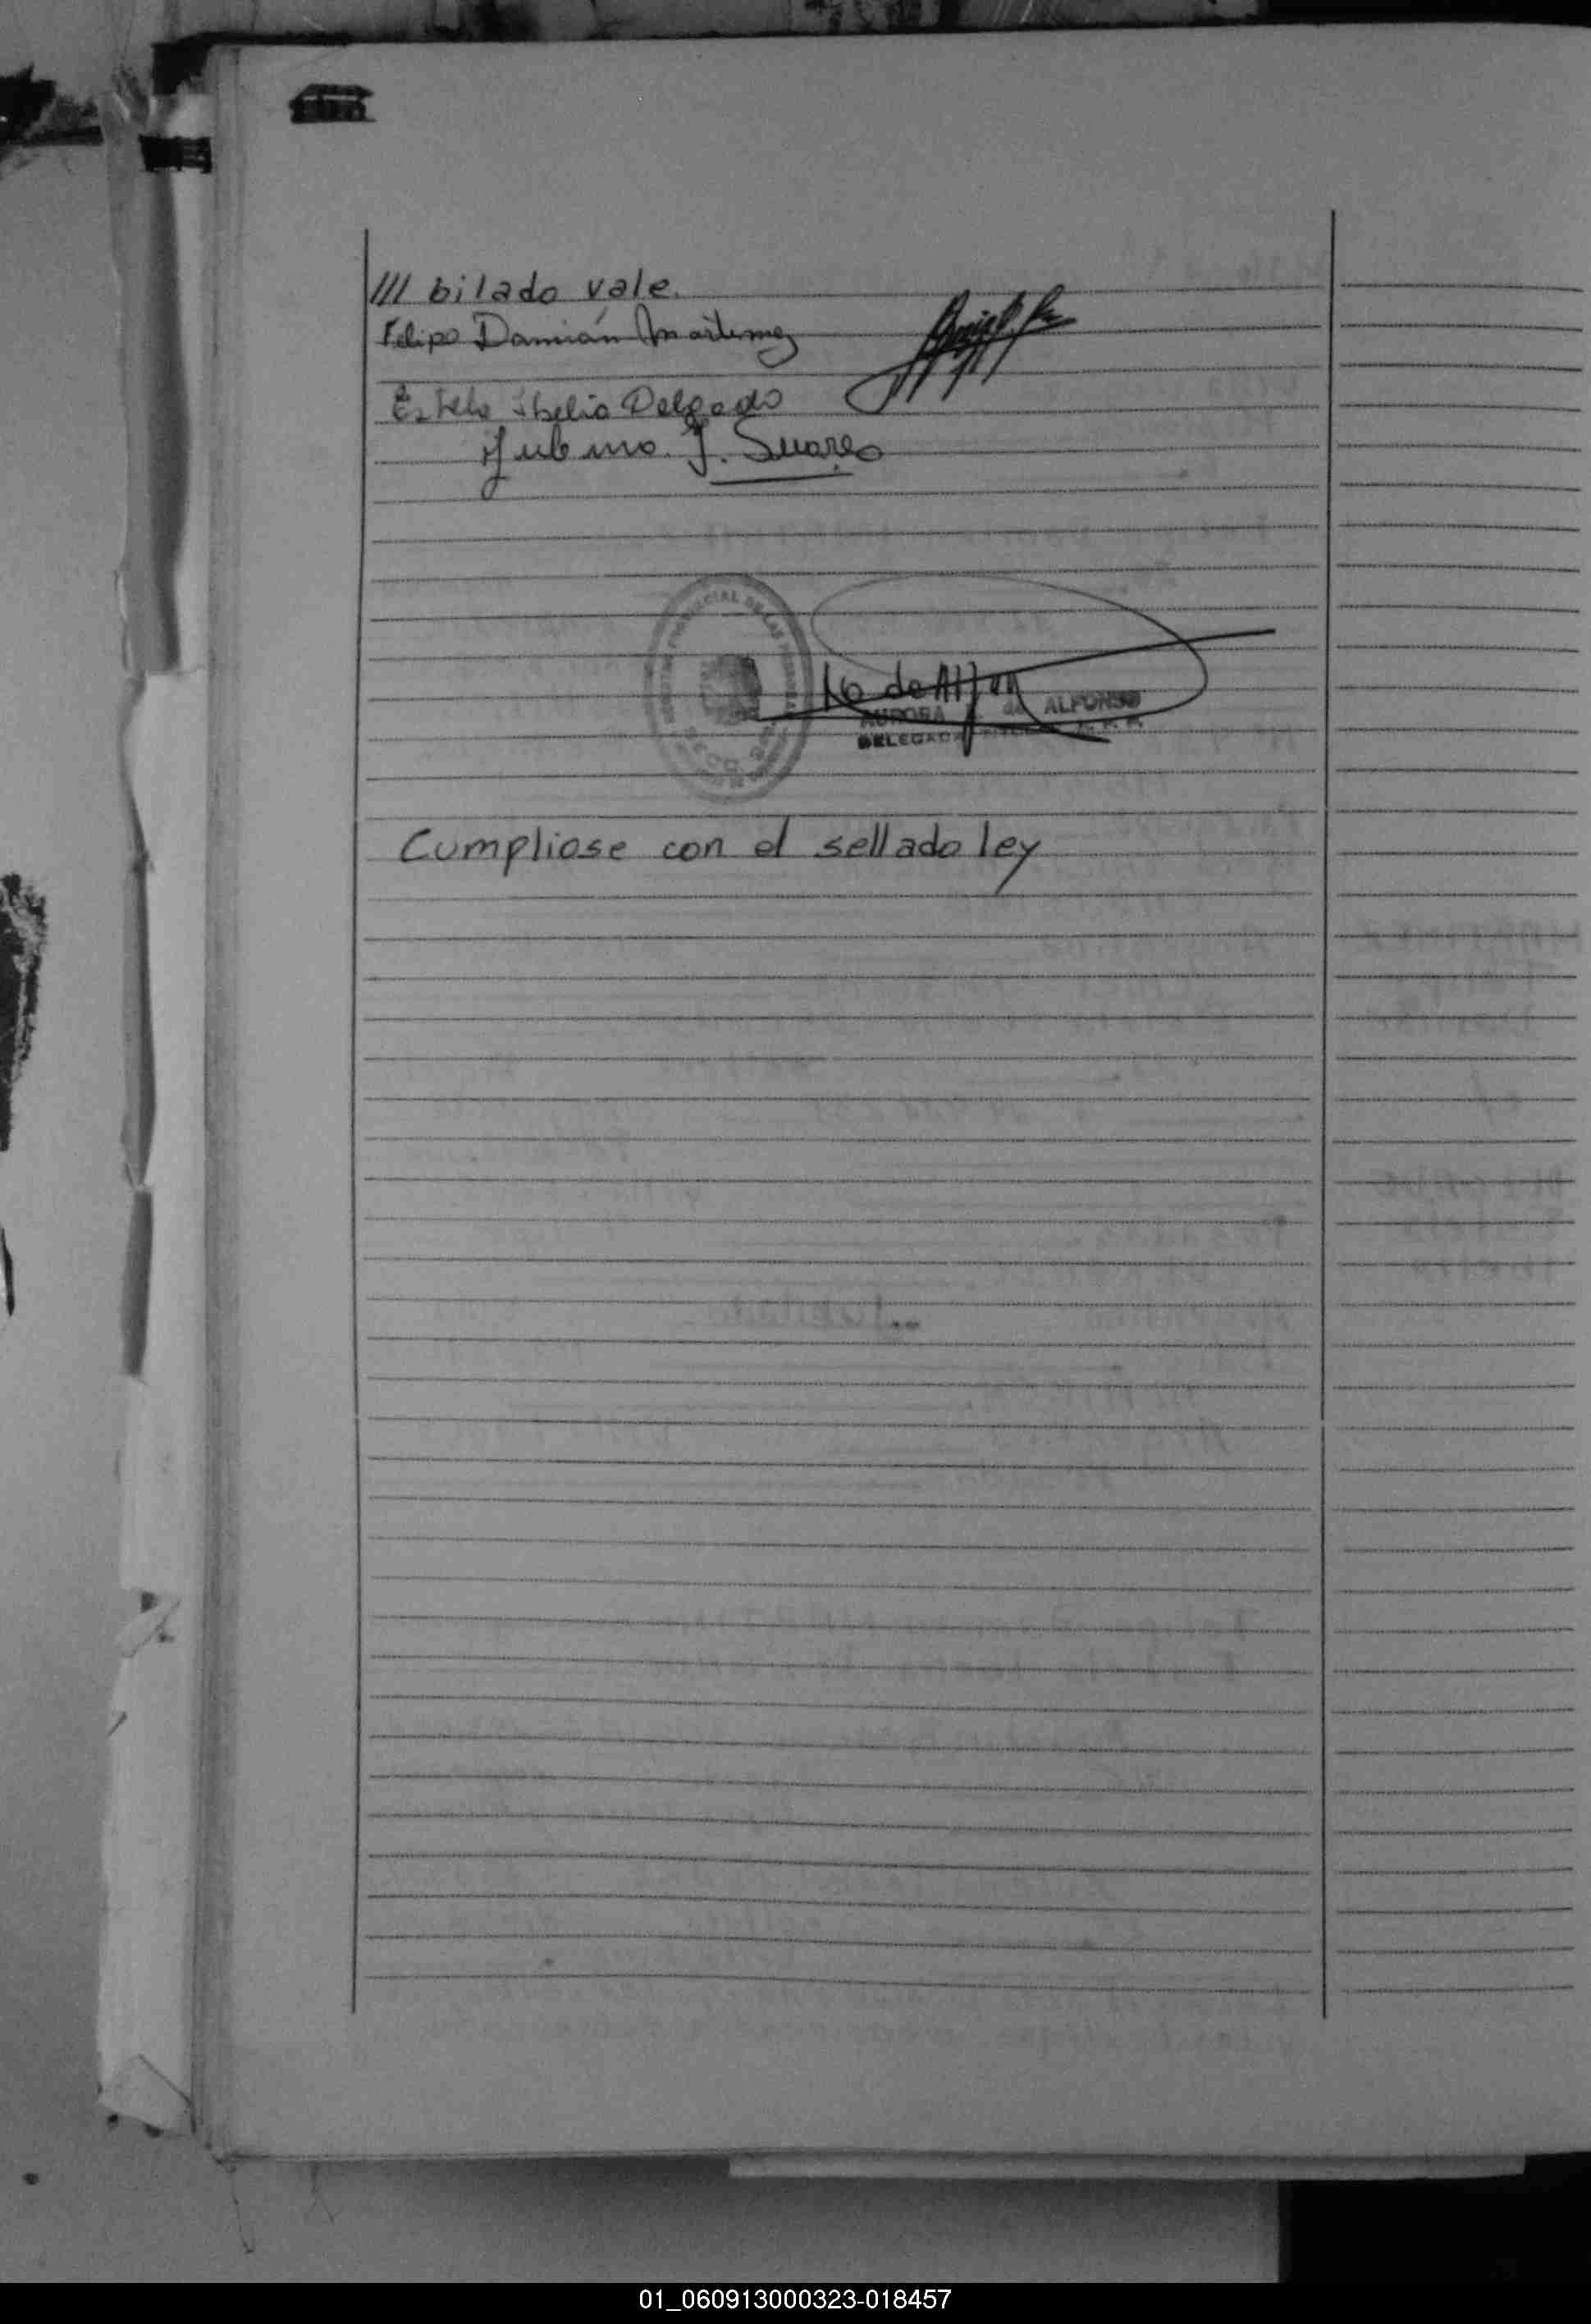 /// bilado vale.
Felipe Damián Martinez
Estela Ibelia Delgado
J. Suarez
de Alfon
AURORA de ALFONSO
DELEGADA
Cumpliose con el sellado ley
01_060913000323-018457